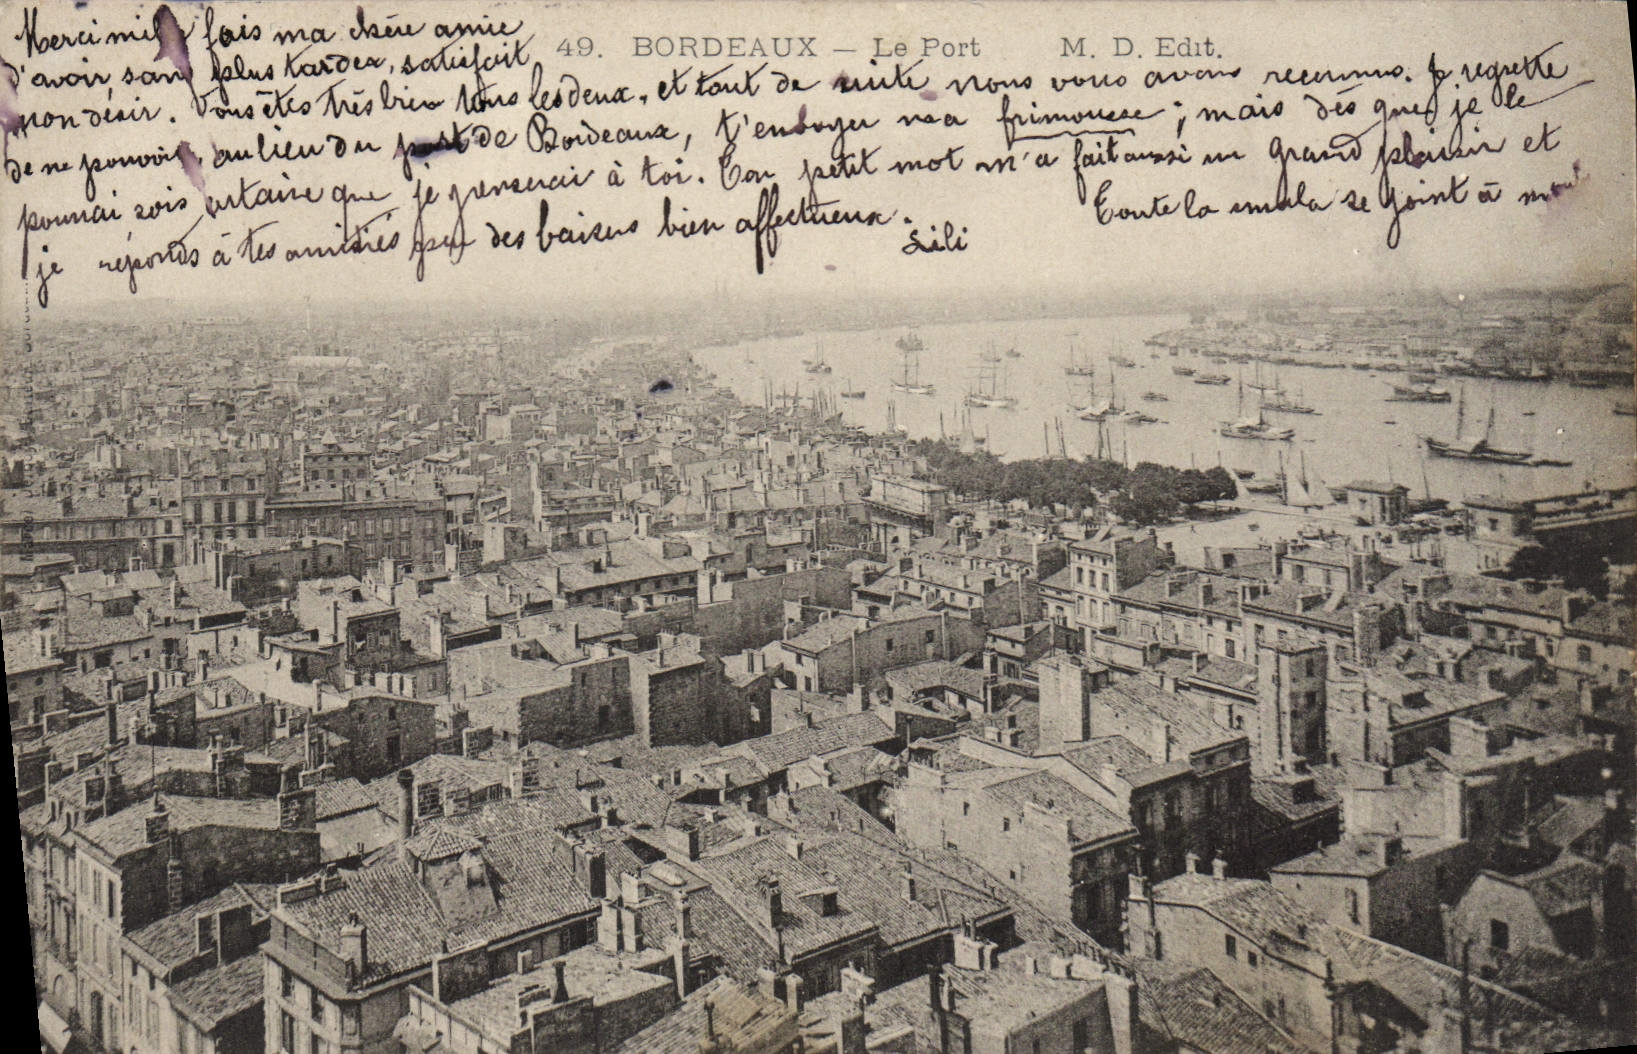 Merci mille fois ma chère amie
49. BORDEAUX — Le Port M. D. Edit.
d'avoir, sans plus tarder, satisfait
mon désir. Vous êtes très bien tous les deux, et tout de suite nous vous avons reconnus. Je regrette
de ne pouvoir, au lieu du port de Bordeaux, t'envoyer ma frimousse ; mais dès que je le
pourrai, sois certaine que je penserai à toi. Ton petit mot m'a fait aussi un grand plaisir et
je réponds à tes amitiés par des baisers bien affectueux. Toute la smala se joint à moi
Lili